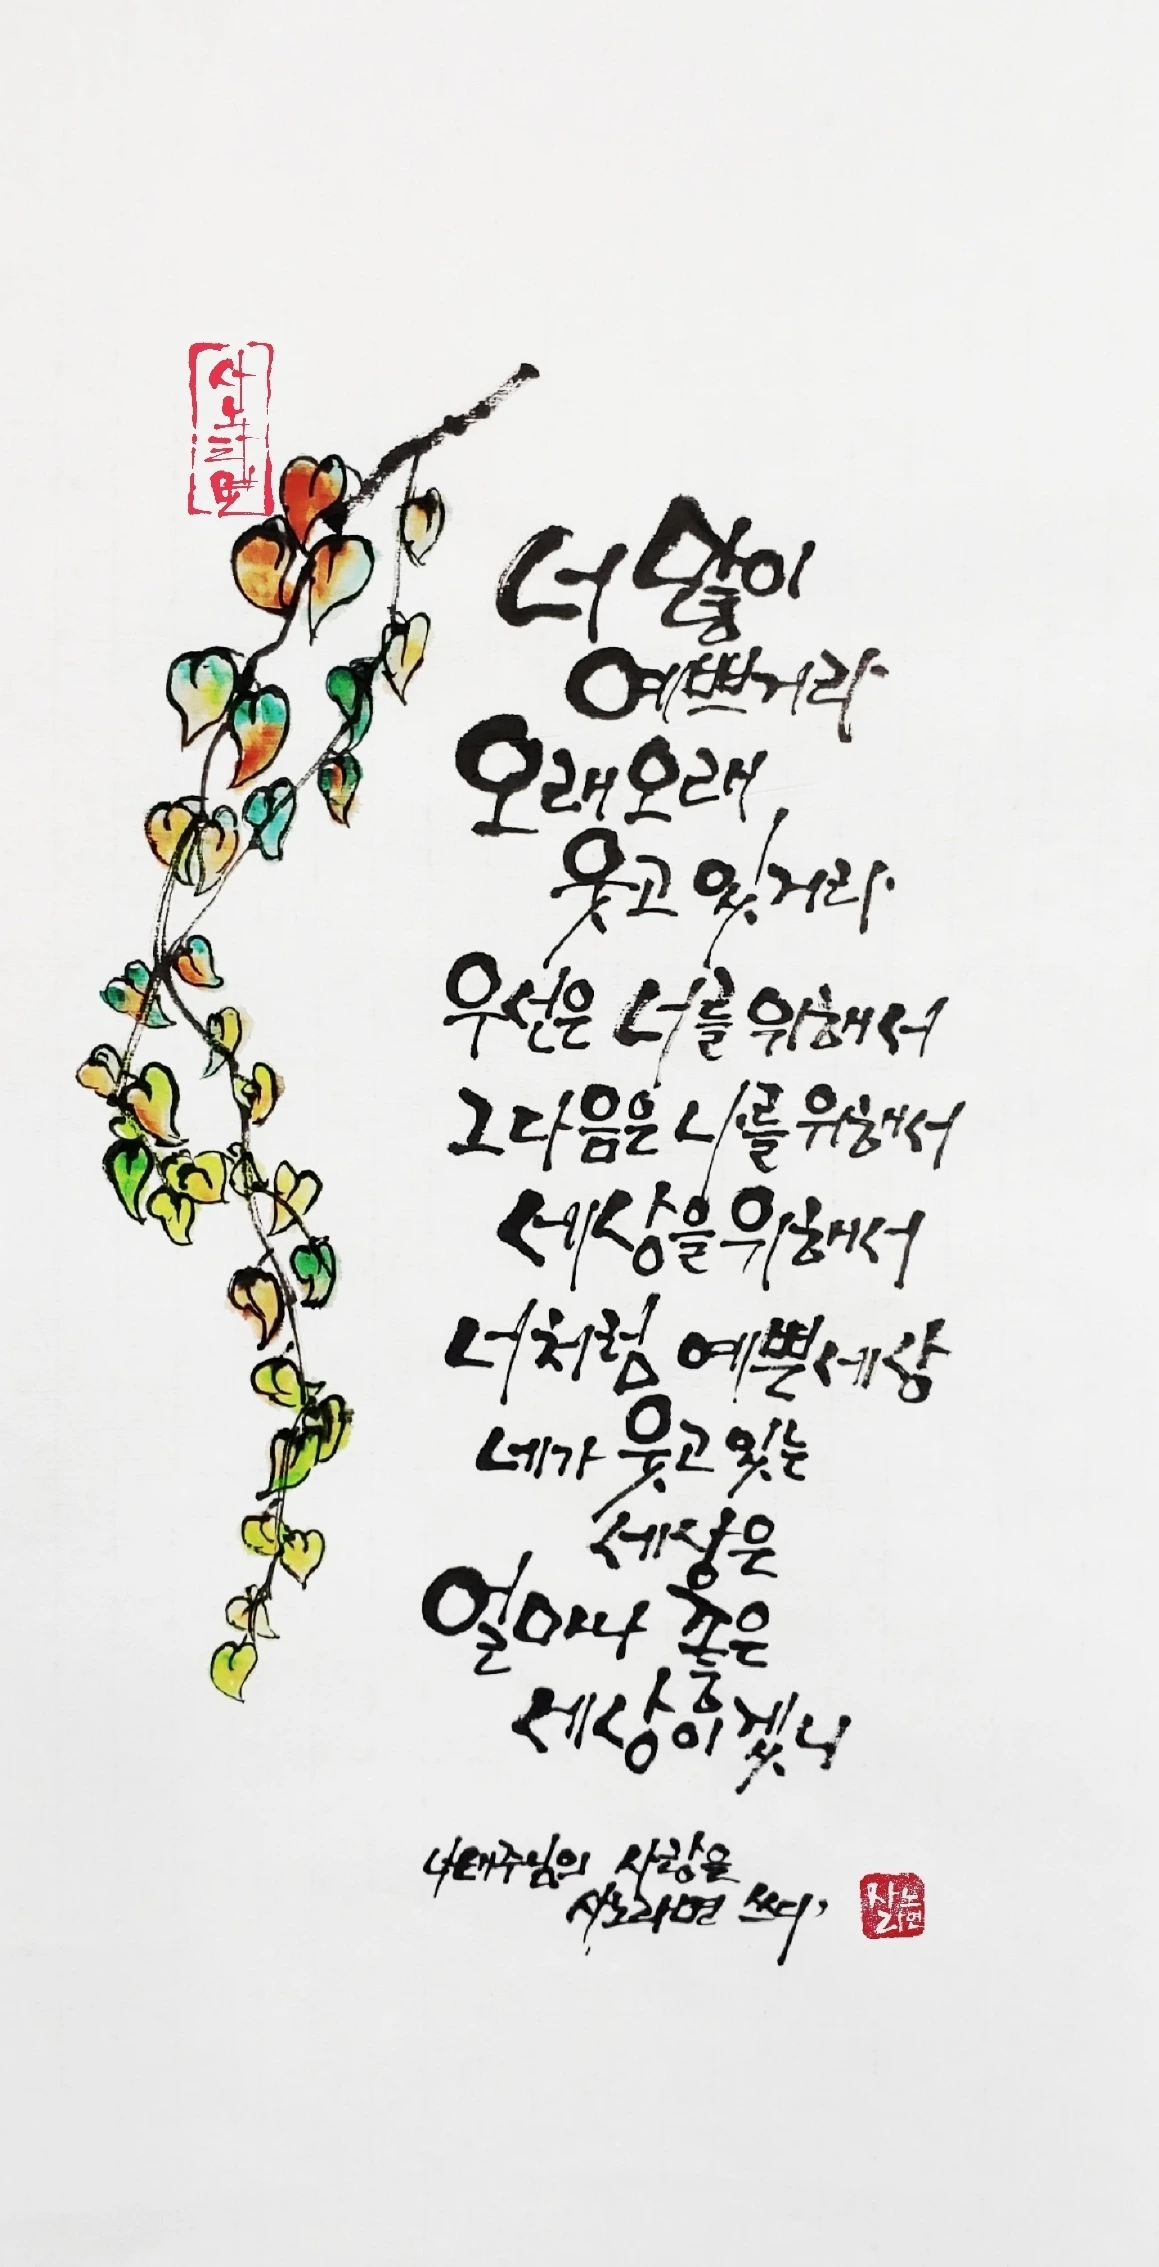 너 많이
예쁘거라
오래오래
웃고 있거라
우선은 너를 위해서
그다음은 나를 위해서
세상을 위해서
너처럼 예쁜 세상
네가 웃고 있는
세상은
얼마나 좋은
세상이겠니
나태주님의 사랑을
사노라면 쓰다
사노라면